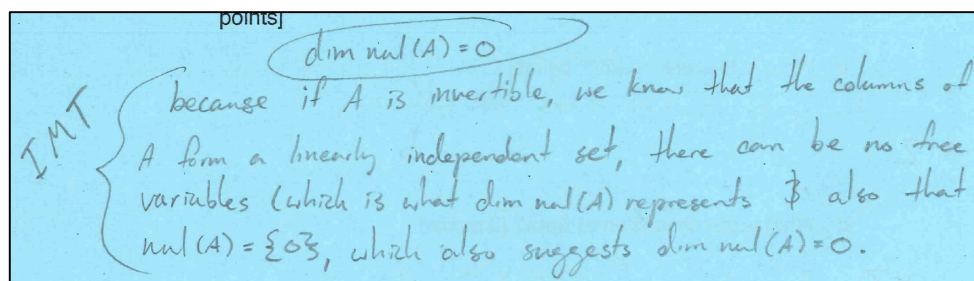 points]
dim nul(A) = 0
IMT
because if A is invertible, we know that the columns of
A form a linearly independent set, there can be no free
variables (which is what dim nul(A) represents & also that
nul(A) = {0}, which also suggests dim nul(A) = 0.